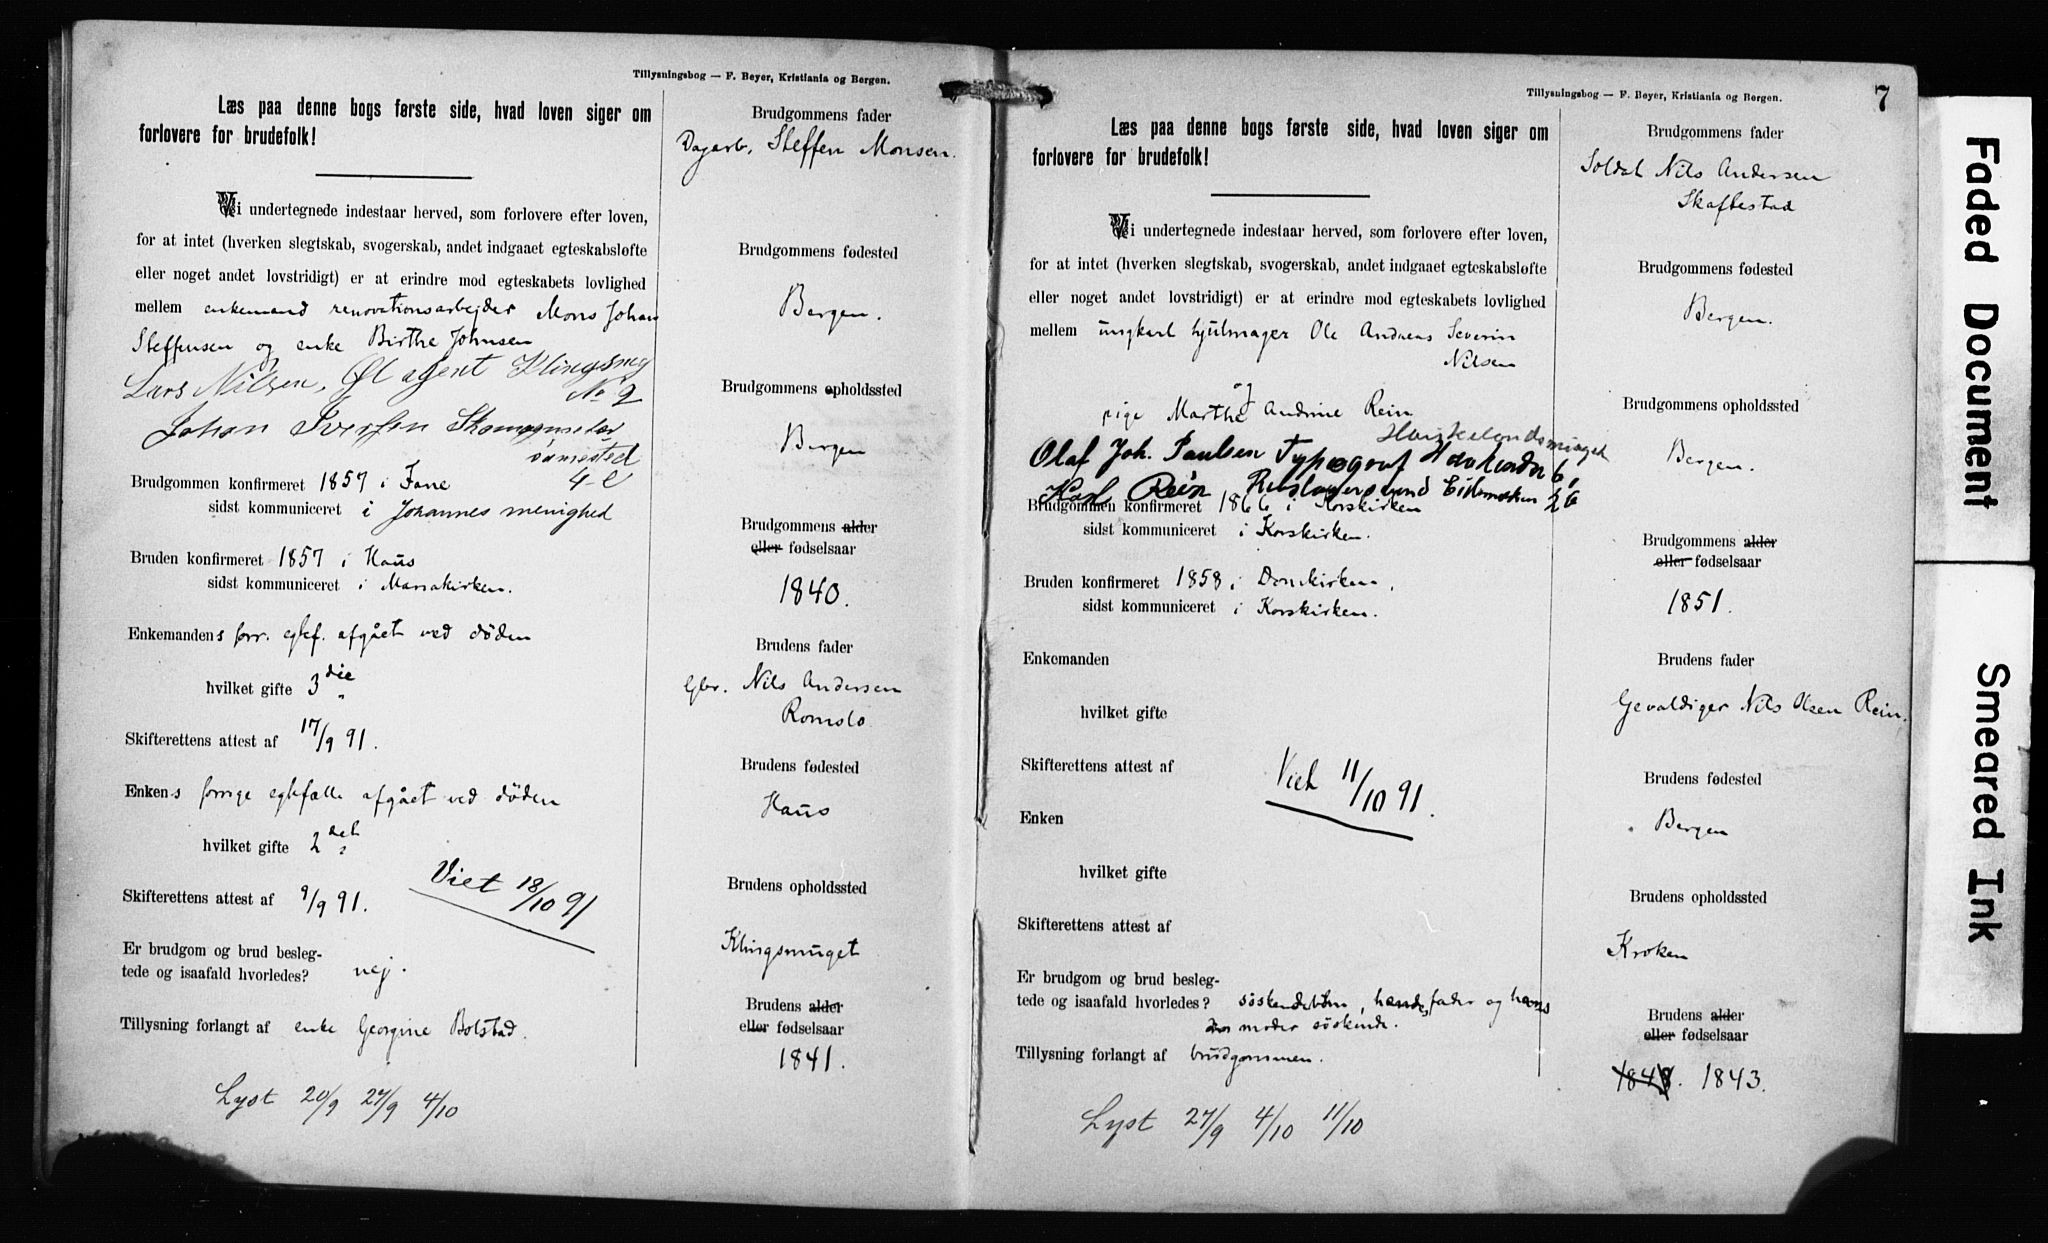 Tillysningsbog — F. Beyer, Kristiania og Bergen.
Læs paa denne bogs første side, hvad loven siger om
forlovere for brudefolk!
Vi undertegnede indestaar herved, som forlovere efter loven,
for at intet (hverken slegtskab, svogerskab, andet indgaaet egteskabsløfte
eller noget andet lovstridigt) er at erindre mod egteskabets lovlighed
mellem enkemand renovationsarbejder Mons Johan
Steffensen og enke Birthe Johnsen
Lars Nilsen, Øl agent Klingsmg
No 2
Johan Iversen
samested
4-6
Brudgommen konfirmeret 1857 i Fane
sidst kommuniceret i Johannes menighed
Bruden konfirmeret 1857 i Haus
sidst kommuniceret i Mariakirken.
Enkemandens forr. egtef. afgået ved døden
hvilket gifte 3die
Skifterettens attest af 17/9 91.
Enkens forrige egtefælle afgået ved døden
hvilket gifte 2det
Viet 18/10 91
Skifterettens attest af 9/9 91.
Er brudgom og brud besleg-
tede og isaafald hvorledes? nej.
Tillysning forlangt af enke Georgine Bolstad.
Lyst 20/9 27/9 4/10
Brudgommens fader
Dagarb. Steffen Monsen.
Brudgommens fødested
Bergen.
Brudgommens opholdssted
Bergen
Brudgommens alder
eller fødselsaar
1840.
Brudens fader
Gbr. Nils Andersen
Romslo
Brudens fødested
Haus
Brudens opholdssted
Klingsmuget
Brudens alder
eller fødselsaar
1841.
Tillysningsbog — F. Beyer, Kristiania og Bergen.
7
Læs paa denne bogs første side, hvad loven siger om
forlovere for brudefolk!
Vi undertegnede indestaar herved, som forlovere efter loven,
for at intet (hverken slegtskab, svogerskab, andet indgaaet egteskabsløfte
eller noget andet lovstridigt) er at erindre mod egteskabets lovlighed
mellem ungkarl hjulmager Ole Andreas Severin
Nilsen
og
pige Marthe Andrine Rein
Olaf Joh. Paulsen Typograf
Karl Rein
Brudgommen konfirmeret 1866 i Korskirken
sidst kommuniceret i Korskirken.
Bruden konfirmeret 1858 i Domkirken.
sidst kommuniceret i Korskirken.
Enkemanden
hvilket gifte
Skifterettens attest af
Viet 11/10 91.
Enken
hvilket gifte
Skifterettens attest af
Er brudgom og brud besleg-
tede og isaafald hvorledes? søskendebørn, hendes fader og hans
moder søskende.
Tillysning forlangt af brudgommen.
Lyst 27/9 4/10 11/10
Brudgommens fader
Soldat Nils Andersen
Skaftestad
Brudgommens fødested
Bergen.
Brudgommens opholdssted
Bergen.
Brudgommens alder
eller fødselsaar
1851.
Brudens fader
Gevaldiger Nils Olsen Rein.
Brudens fødested
Bergen
Brudens opholdssted
Kroken
Brudens alder
eller fødselsaar
1843.
Faded Document
Smeared Ink